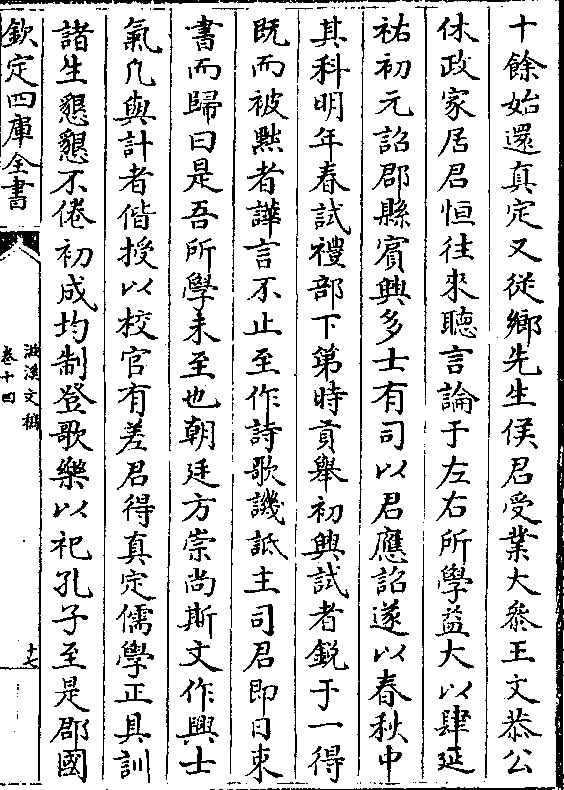 十餘始還真定又從鄉先生侯君受業大叅王文恭公
休政家居君恒徃來聽言論于左右所學益大以肆延
祐初元詔郡縣賓興多士有司以君應詔遂以春秋中
其科明年春試禮部下第時貢舉初興試者鋭于一得
既而被黜者譁言不止至作詩歌譏詆主司君即日束
書而歸曰是吾所學未至也朝廷方崇尚斯文作興士
氣凡與計者偕授以校官有差君得真定儒學正具訓
諸生懇懇不倦初成均制登歌樂以祀孔子至是郡國
欽定四庫全書
滋溪文稿
卷十四
十七